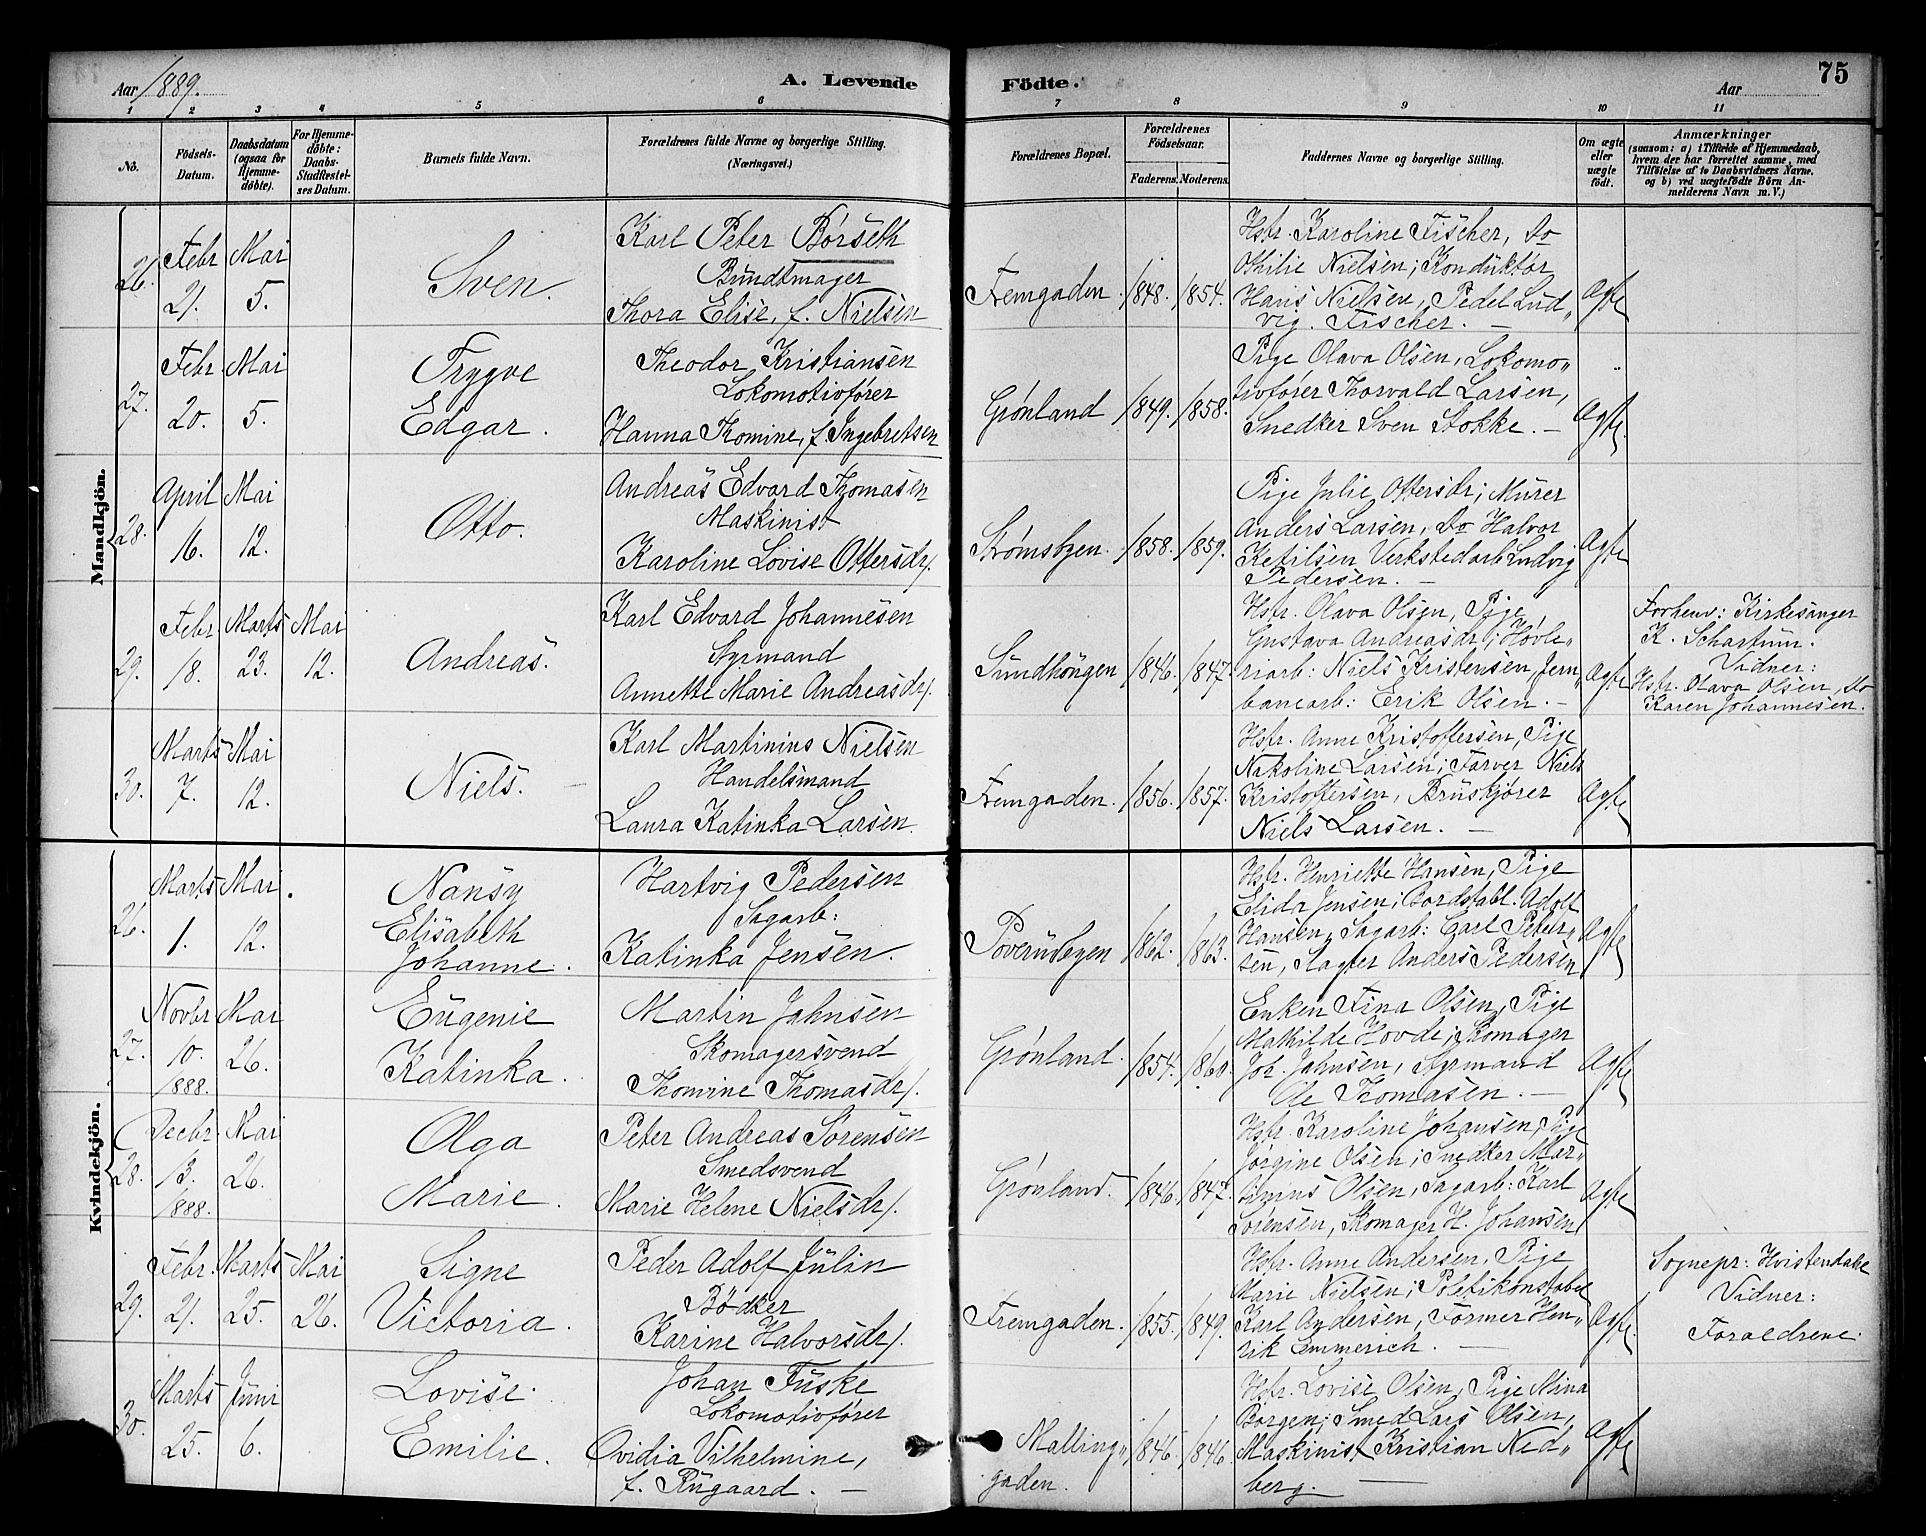 Aar 1889.
A. Levende Födte.
Aar
75
1 2 3 4 5 6 7 8 9 10 11
No.
Födsels-Datum.
Daabsdatum (ogsaa for Hjemme-döbte).
For Hjemme-döbte: Daabs-Stadfæstel-ses Datum.
Barnets fulde Navn.
Forældrenes fulde Navne og borgerlige Stilling.
(Næringsvei.)
Forældrenes Bopæl.
Forældrenes Födselsaar.
Faderens. Moderens.
Faddernes Navne og borgerlige Stilling.
Om ægte eller uægte födt.
Anmærkninger
(saasom: a) i Tilfælde af Hjemmedaab,
hvem der har forrettet samme, med
Tilföielse af to Daabsvidners Navne.
og b) ved uægtefödte Börn An-
melderens Navn m. V.)
Mandkjön.
26. Febr 21. Mai 5.
Sven.
Karl Peter Börseth
Bundtmager
Thora Elise, f. Nielsen
Fremgaden 1848. 1854.
Hstr. Karoline Fischer, do
Othilie Nielsen; Konduktør
Hans Nielsen, Pedel Lud„
vig. Fischer. —
Ægte
27. Febr 20. Mai 5.
Trygve
Edgar.
Theodor Kristiansen
Lokomotivfører
Hanna Tomine, f. Ingebretsen
Grønland 1849. 1858.
Pige Olava Olsen, Lokomo„
tivfører Thorvald Larsen,
Snedker Sven Stokke. —
Ægte
28. April 16. Mai 12.
Otto.
Andreas Edvard Thomasen
Maskinist
Karoline Lovise Ottersdr.
Strømsbyen. 1858. 1859.
Pige Julie Ottersdr; Murer
Anders Larsen, do Halvor
Ketilsen Verkstedarb Ludvig
Pedersen. —
Ægte
29. Febr 18. Marts 23. Mai 12.
Andreas.
Karl Edvard Johannesen
Styrmand
Annette Marie Andreasdr.
Sundhøugen 1846. 1847.
Hstr. Olava Olsen, Pige
Gustava Andreasdr; Høvle„
riarb: Niels Kristensen, Jern„
banearb: Erik Olsen. —
Ægte
Forhenv: Kirkesanger
K. Schartum.
Vidner:
Hstr. Olava Olsen, do
Karen Johannesen.
30. Marts 7. Mai 12.
Niels.
Karl Martinius Nielsen
Handelsmand
Laura Katinka Larsen.
Fremgaden. 1856. 1857.
Hstr. Anne Kristoffersen, Pige
Nikoline Larsen; Farver Niels
Kristoffersen, Bruskjører
Niels Larsen. —
Ægte
Kvindekjön.
26. Marts 1. Mai 12.
Nansy
Elisabeth
Johanne.
Hartvig Pedersen
Sagarb:
Katinka Jensen.
Poverudbyen 1862. 1863.
Hstr. Henriette Hansen, Pige
Elida Jensen; Bordstabl. Adolf
Hansen, Sagarb: Carl Peter„
sen, Slagter Anders Pedersen
Ægte
27. Novbr 10. 1888. Mai 26.
Eugenie
Katinka.
Martin Jahnsen
Skomagersvend
Thomine Thomasdr.
Grønland. 1854. 1860.
Enken Tina Olsen, Pige
Mathilde Hovde; Skomager
Joh. Jahnsen, Styrmand
Ole Thomasen. —
Ægte
28. Decbr. 13. 1888. Mai 26.
Olga
Marie.
Peter Andreas Sörensen
Smedsvend
Marie Helene Nielsdr.
Grønland. 1846. 1847.
Hstr. Karoline Johansen, Pige
Jørgine Olsen; Snedker Mar„
tinius Olsen, Sagarb: Karl
Sörensen, Skomager H. Johansen
Ægte
29. Febr. 21. Marts 25. Mai 26.
Signe
Victoria.
Peder Adolf Julin
Bödker
Karine Halvorsdr.
Fremgaden. 1855. 1849.
Hstr. Anne Andersen, Pige
Marie Nielsen; Politikonstabel
Karl Andersen, Former Hen„
rik Emmerich. —
Ægte.
Sognepr: Hvistendahl
Vidner:
Forældrene.
30. Marts 25. Juni 6.
Lovise.
Emilie.
Johan Fuske
Lokomotivfører
Ovidia Vilhelmine,
f. Rugaard. —
Malling„
gaden. 1846. 1846.
Hstr. Lovise Olsen, Pige Mina
Borgen; Smed Lars Olsen,
Maskinist Kristian Ned„
berg. —
Ægte